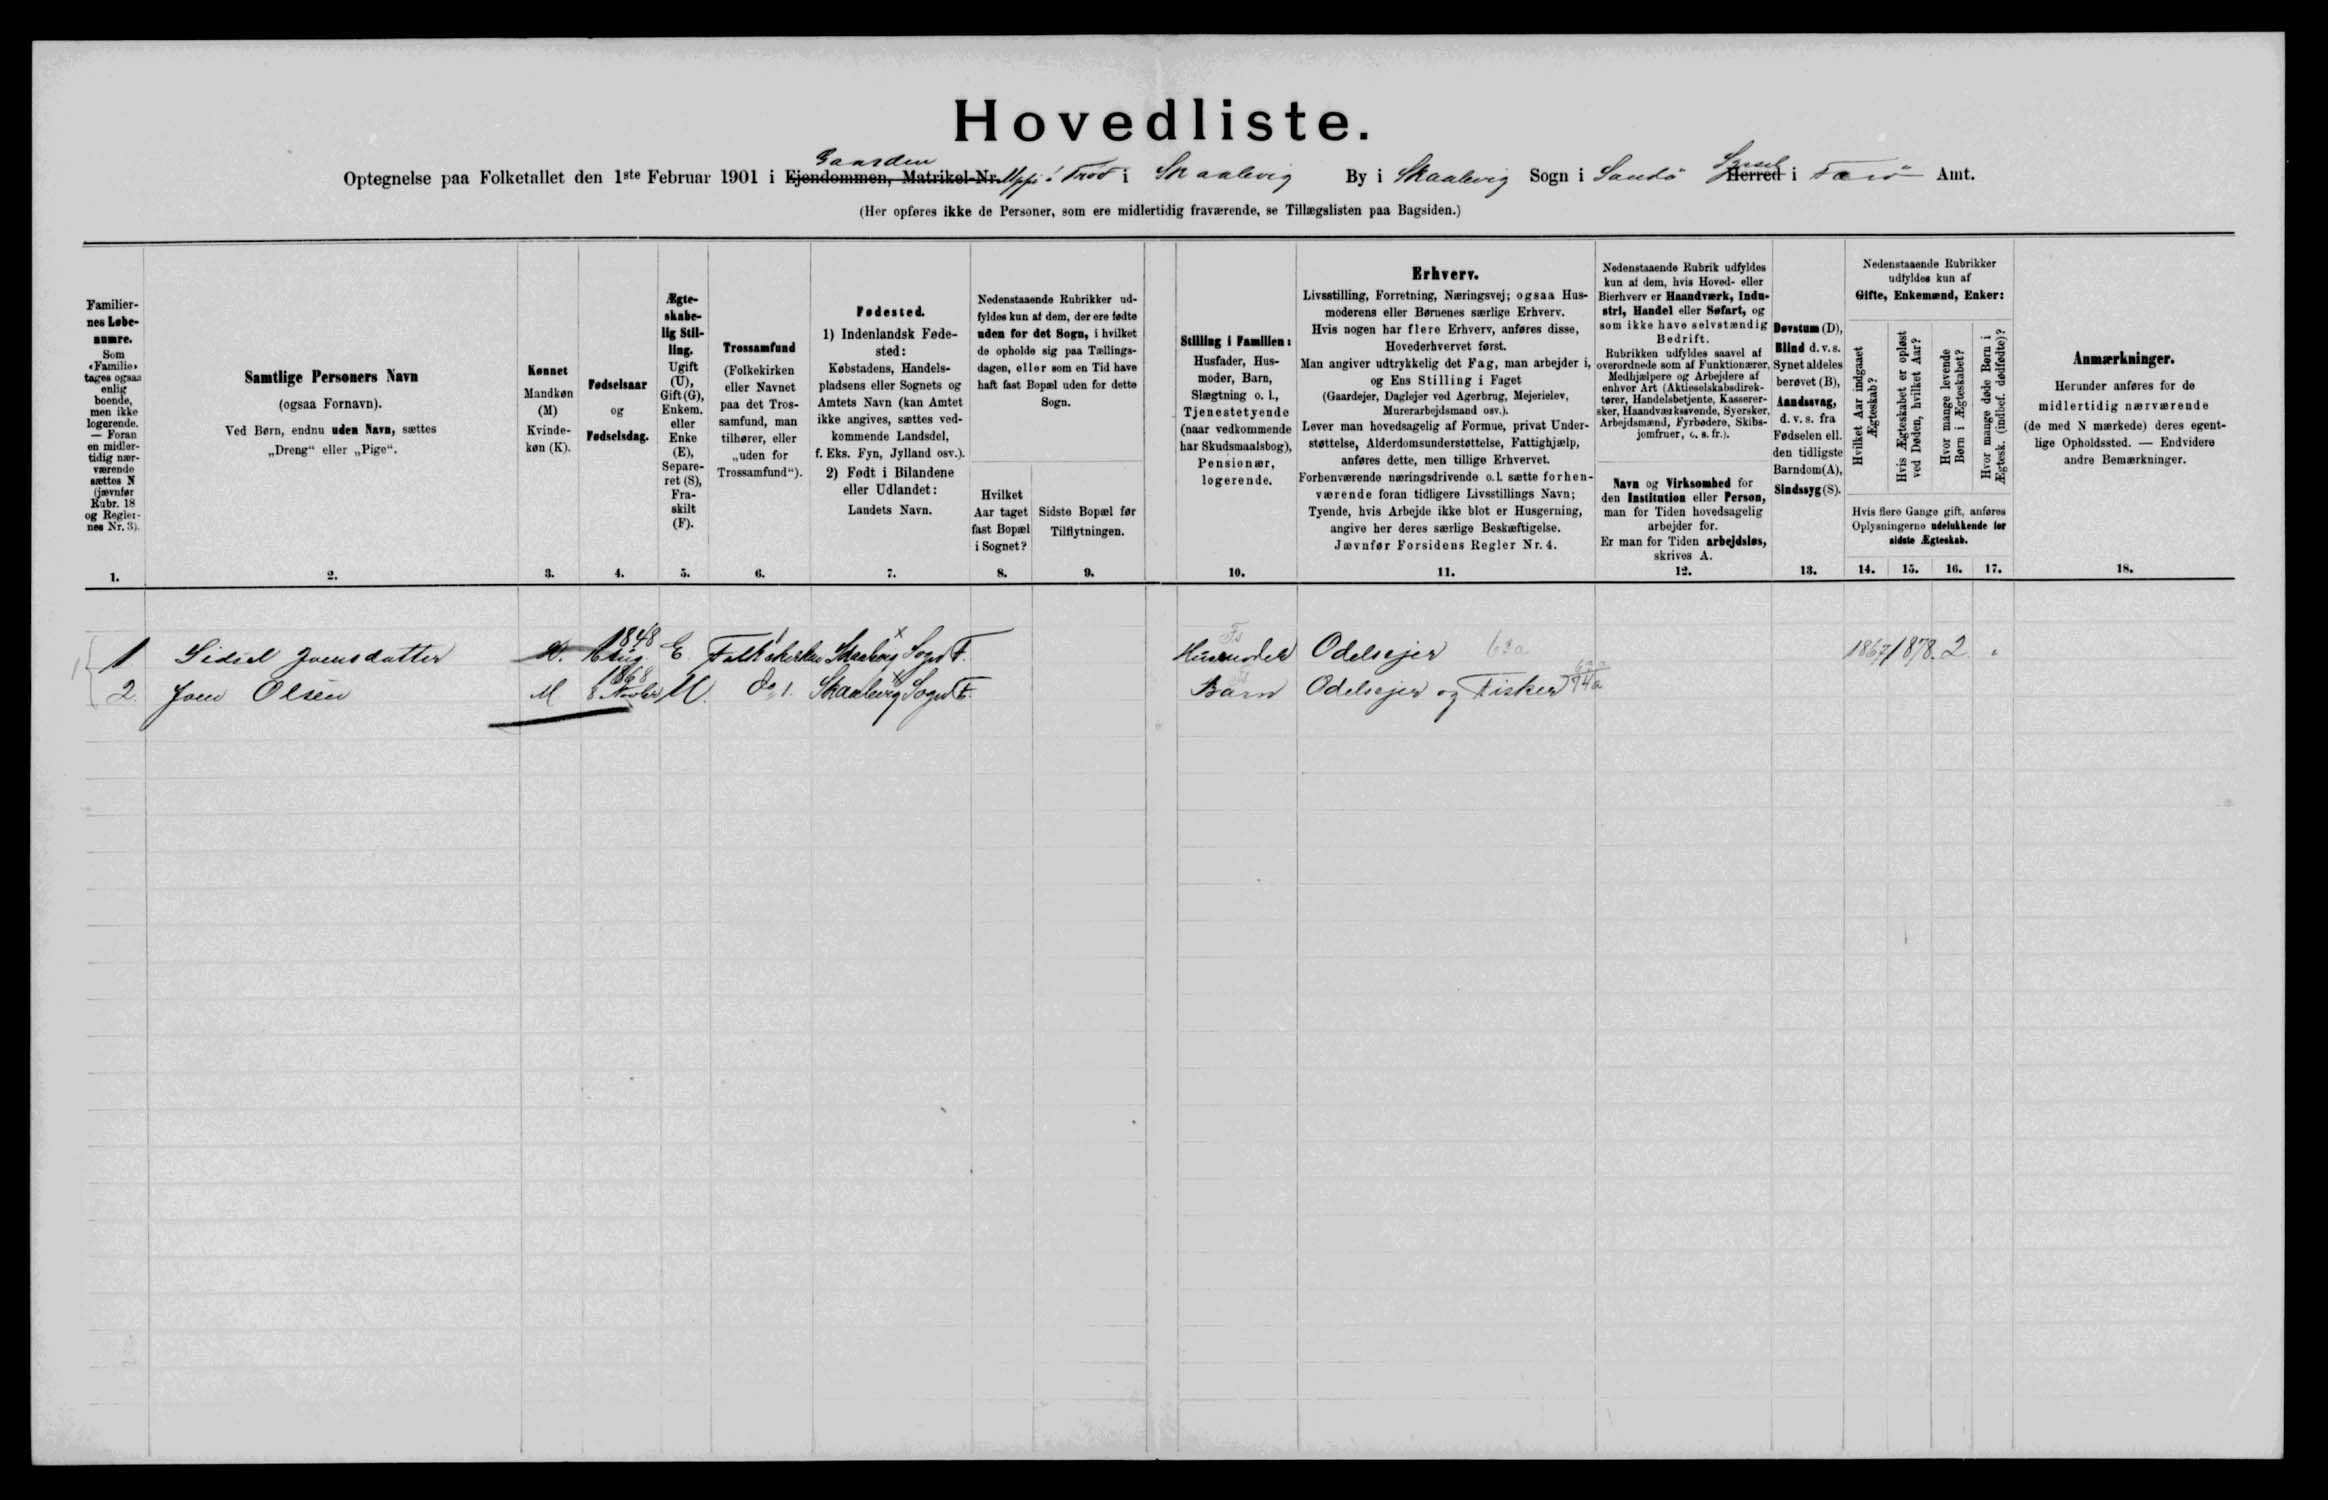 Hovedliste.
Gaarden Syssel
Optegnelse paa Folketallet den 1ste Februar 1901 i Ejendommen, Matrikel-Nr. Uppi i Trøð i Skaalevig By i Skaalevig Sogn i Sandø Herred i Færø Amt.
(Her opføres ikke de Personer, som ere midlertidig fraværende, se Tillægslisten paa Bagsiden.)
Familier-
nes Løbe-
numre.
Som
«Familie»
tages ogsaa
enlig
boende,
men ikke
logerende.
— Foran
en midler-
tidig nær-
værende
sættes N
(jævnfør
Rubr. 18
og Regler-
nes Nr. 3).
1.
Samtlige Personers Navn
(ogsaa Fornavn).
Ved Børn, endnu uden Navn, sættes
„Dreng“ eller „Pige“.
2.
Kønnet
Mandkøn
(M)
Kvinde-
køn (K).
3.
Fødselsaar
og
Fødselsdag.
4.
Ægte-
skabe-
lig Stil-
ling.
Ugift
(U),
Gift (G),
Enkem.
eller
Enke
(E),
Separe-
ret (S),
Fra-
skilt
(F).
5.
Trossamfund
(Folkekirken
eller Navnet
paa det Tros-
samfund, man
tilhører, eller
„uden for
Trossamfund“).
6.
Fødested.
1) Indenlandsk Føde-
sted:
Købstadens, Handels-
pladsens eller Sognets og
Amtets Navn (kan Amtet
ikke angives, sættes ved-
kommende Landsdel,
f. Eks. Fyn, Jylland osv.).
2) Født i Bilandene
eller Udlandet:
Landets Navn.
7.
Nedenstaaende Rubrikker ud-
fyldes kun af dem, der ere fødte
uden for det Sogn, i hvilket
de opholde sig paa Tællings-
dagen, eller som en Tid have
haft fast Bopæl uden for dette
Sogn.
Hvilket
Aar taget
fast Bopæl
i Sognet?
8.
Sidste Bopæl før
Tilflytningen.
9.
Stilling i Familien:
Husfader, Hus-
moder, Barn,
Slægtning o. l.,
Tjenestetyende
(naar vedkommende
har Skudsmaalsbog),
Pensionær,
logerende.
10.
Erhverv.
Livsstilling, Forretning, Næringsvej; ogsaa Hus-
moderens eller Børnenes særlige Erhverv.
Hvis nogen har flere Erhverv, anføres disse,
Hovederhvervet først.
Man angiver udtrykkelig det Fag, man arbejder i,
og Ens Stilling i Faget
(Gaardejer, Daglejer ved Agerbrug, Mejerielev,
Murerarbejdsmand osv.).
Lever man hovedsagelig af Formue, privat Under-
støttelse, Alderdomsunderstøttelse, Fattighjælp,
anføres dette, men tillige Erhvervet.
Forhenværende næringsdrivende o.l. sætte forhen-
værende foran tidligere Livsstillings Navn;
Tyende, hvis Arbejde ikke blot er Husgerning,
angive her deres særlige Beskæftigelse.
Jævnfør Forsidens Regler Nr. 4.
11.
Nedenstaaende Rubrik udfyldes
kun af dem, hvis Hoved- eller
Bierhverv er Haandværk, Indu-
stri, Handel eller Søfart, og
som ikke have selvstændig
Bedrift.
Rubrikken udfyldes saavel af
overordnede som af Funktionærer,
Medhjælpere og Arbejdere af
enhver Art (Aktieselskabsdirek-
tører, Handelsbetjente, Kasserer-
sker, Haandværkssvende, Syersker,
Arbejdsmænd, Fyrbødere, Skibs-
jomfruer, o. s. fr.).
Navn og Virksomhed for
den Institution eller Person,
man for Tiden hovedsagelig
arbejder for.
Er man for Tiden arbejdsløs,
skrives A.
12.
Døvstum (D),
Blind d. v. s.
Synet aldeles
berøvet (B),
Aandssvag,
d. v. s. fra
Fødselen ell.
den tidligste
Barndom (A),
Sindssyg (S).
13.
Nedenstaaende Rubrikker
udfyldes kun af
Gifte, Enkemænd, Enker:
Hvilket Aar indgaaet
Ægteskab?
Hvis Ægteskabet er opløst
ved Døden, hvilket Aar?
Hvor mange levende
Børn i Ægteskabet?
Hvor mange døde Børn i
Ægtesk. (indbef. dødfødte)?
Hvis flere Gange gift, anføres
Oplysningerne udelukkende for
sidste Ægteskab.
14. 15. 16. 17.
Anmærkninger.
Herunder anføres for de
midlertidig nærværende
(de med N mærkede) deres egent-
lige Opholdssted. — Endvidere
andre Bemærkninger.
18.
1 Sidsel Joensdatter K. 1848 Aug. E. Folkekirken Skaalevig Sogn F. Husmoder Odelsejer 62a 1867 1878. 2
2. Joen Olsen M 1868 8 Novbr U. Do 1. Skaalevig Sogn F. Barn Odelsejer og Fisker